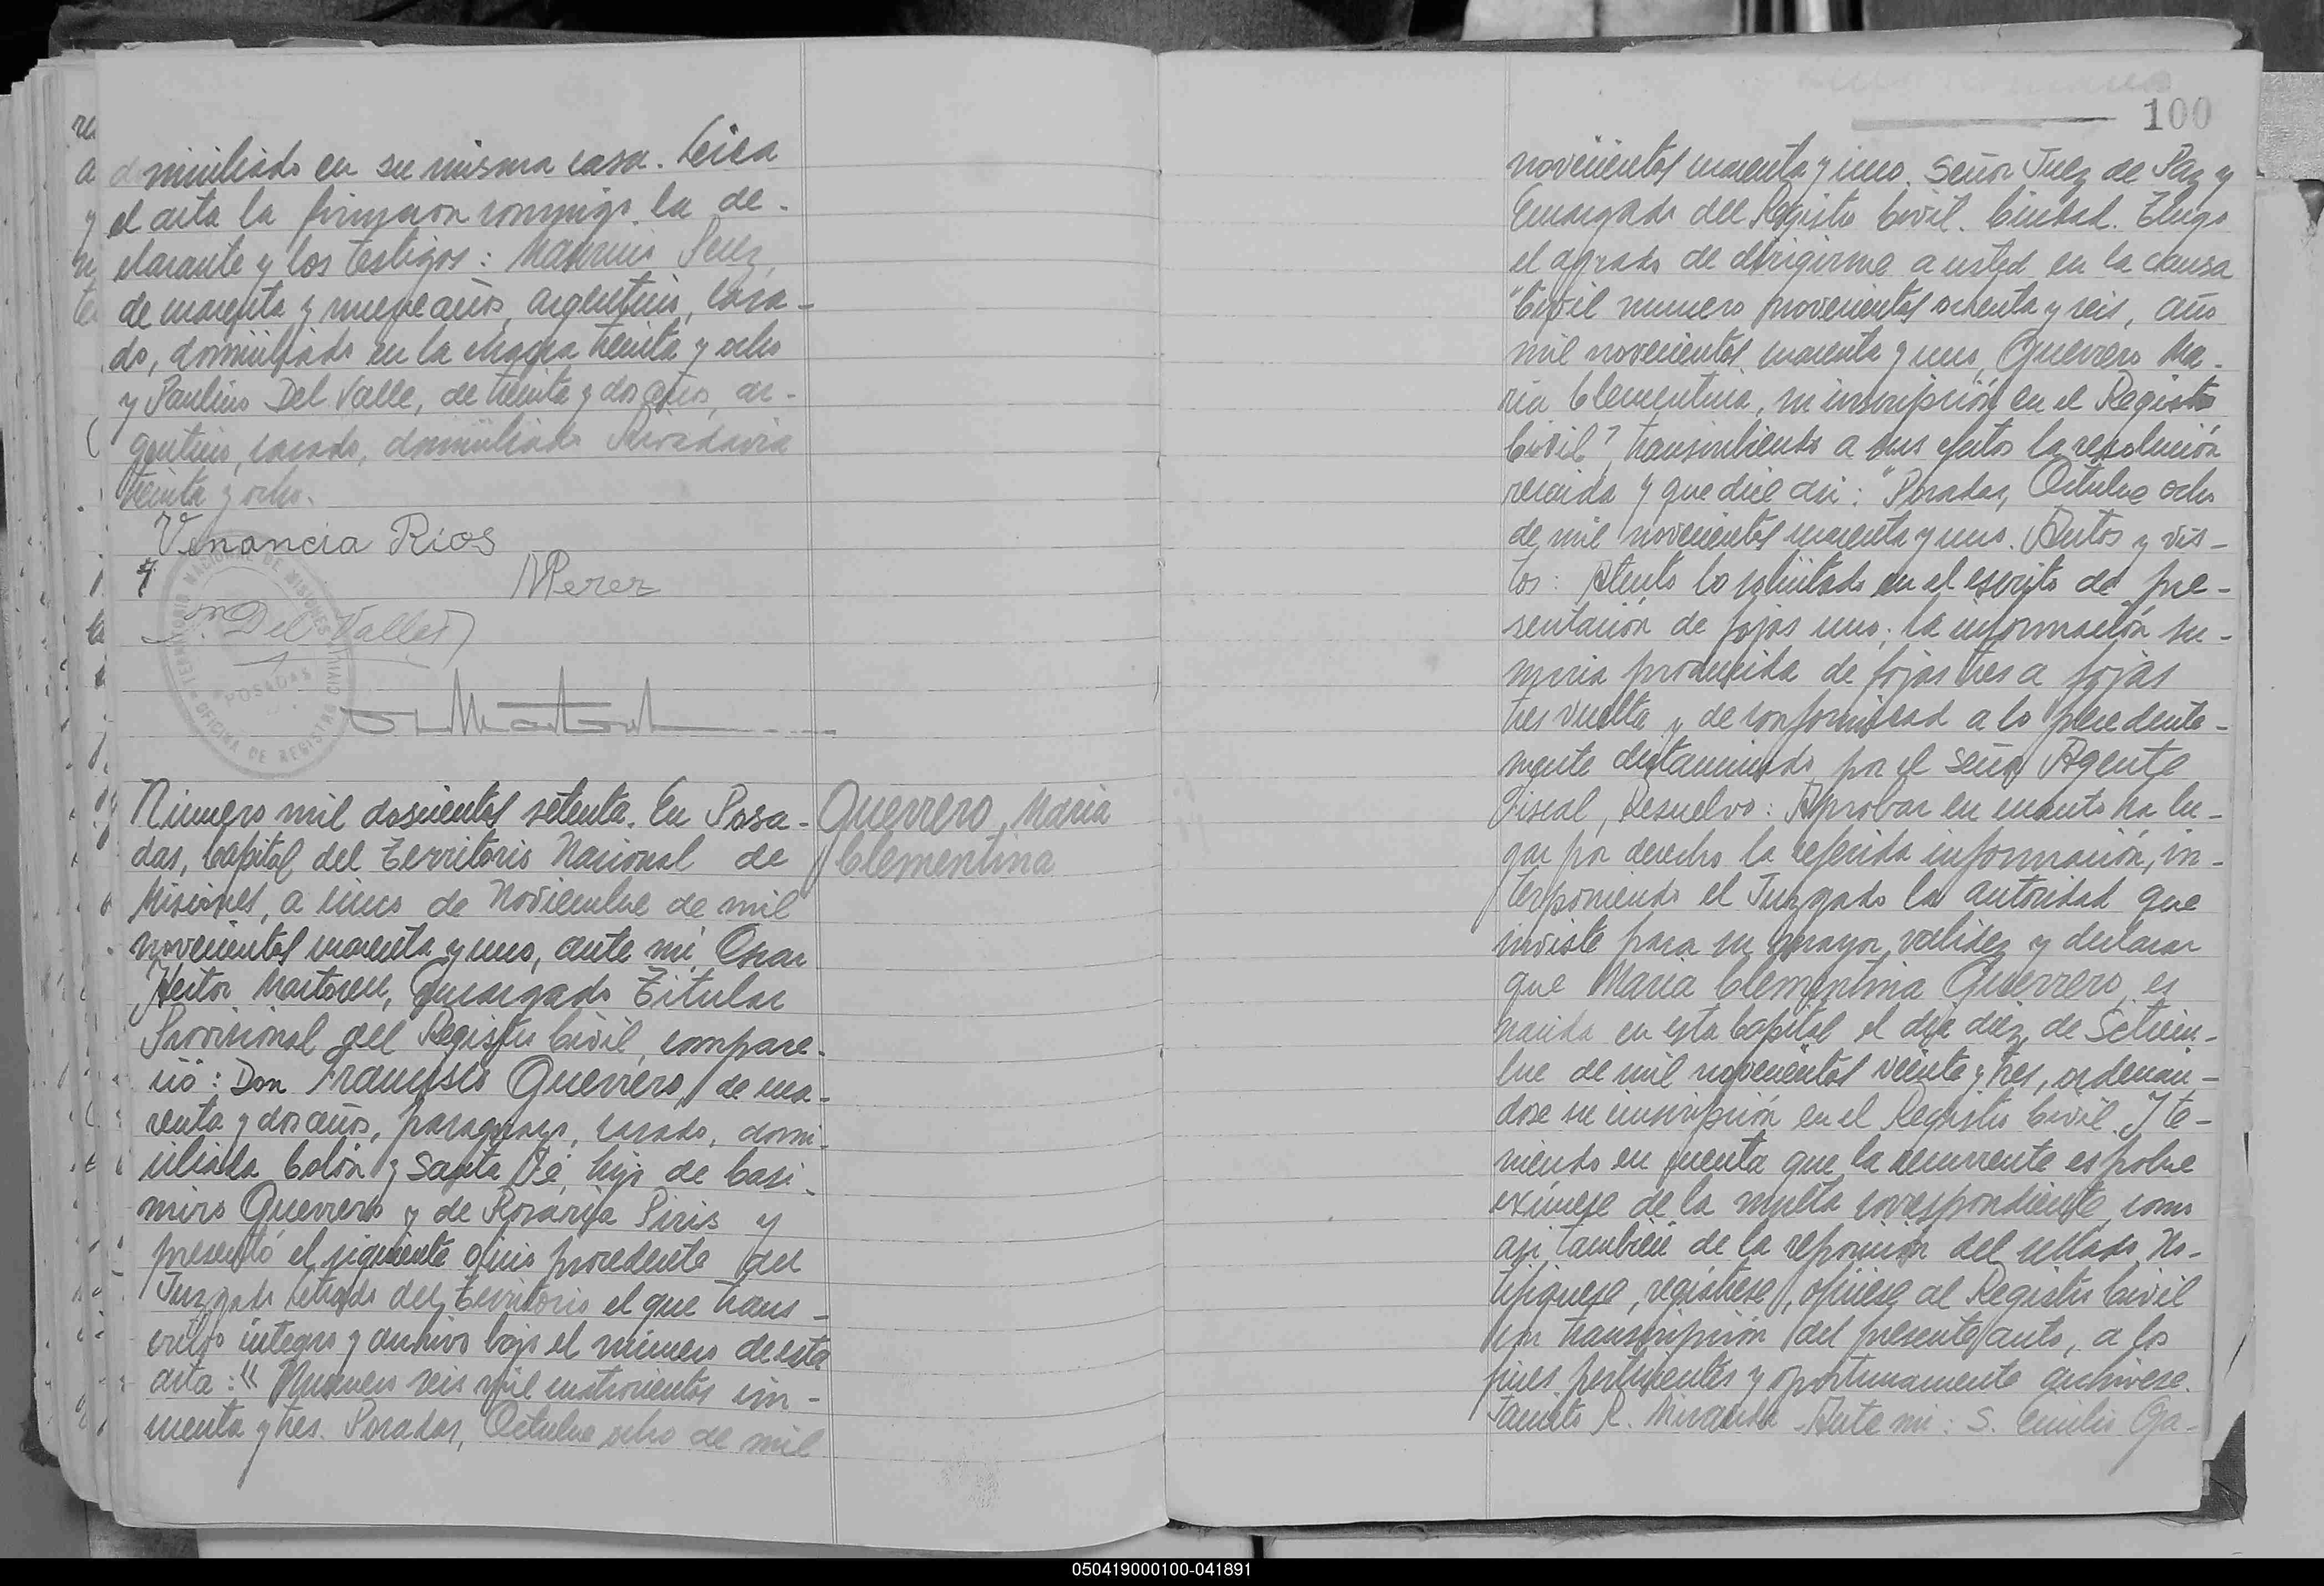 domiciliado en su misma casa. Leída
el acta la firmaron conmigo la de-
clarante y los testigos: Maximo Perez,
de cuarenta y nueve años, argentino, casa-
do, domiciliado en la chacra treinta y ocho
y Paulino Del Valle, de treinta y dos años, ar-
gentino, casado, domiciliado Rivadavia
treinta y ocho.
Venancia Rios
MPerez
P. Del Valle
TERRITORIO NACIONAL DE MISIONES
POSADAS
OFICINA DE REGISTRO
Número mil doscientos setenta. En Posa-
das, Capital del Territorio Nacional de
Misiones, a cinco de Noviembre de mil
novecientos cuarenta y uno, ante mí, Oscar
Hector Martorell, Encargado Titular
Provisional del Registro Civil, compare-
ció: Don Francisco Guerrero, de cua-
renta y dos años, paraguayo, casado, domi-
ciliado Colón y Santa Fé, hijo de Casi-
miro Guerrero y de Rosaria Piris y
presentó el siguiente oficio procedente del
Juzgado Letrado del Territorio el que trans-
cribo íntegro y archivo bajo el número de esta
acta: "Número seis mil cuatrocientos cin-
cuenta y tres. Posadas, Octubre ocho de mil
Guerrero, Maria
Clementina
100
novecientos cuarenta y uno. Señor Juez de Paz y
Encargado del Registro Civil. Ciudad. Tengo
el agrado de dirigirme a usted en la causa
"Civil numero novecientos ochenta y seis, año
mil novecientos cuarenta y uno, Guerrero Ma-
ria Clementina, su inscripción en el Registro
Civil", transcribiendo a sus efectos la resolución
recaida y que dice así: "Posadas, Octubre ocho
de mil novecientos cuarenta y uno. Autos y vis-
tos: Atento lo solicitado en el escrito de pre-
sentación de fojas uno; la información su-
maria producida de fojas tres a fojas
tres vuelta y de conformidad a lo precedente-
mente dictaminado por el señor Agente
Fiscal, Resuelvo: Aprobar en cuanto ha lu-
gar por derecho la referida información, in-
terponiendo el Juzgado la autoridad que
inviste para su mayor validez y declarar
que Maria Clementina Guerrero, es
nacida en esta Capital el día diez de Setiem-
bre de mil novecientos veinte y tres, ordenan-
dose su inscripción en el Registro Civil. Y te-
niendo en cuenta que la recurrente es pobre
exímese de la multa correspondiente, como
asi tambien de la reposición del sellado. No-
tifíquese, regístrese, ofíciese al Registro Civil
con transcripción del presente auto, a los
fines pertinentes y oportunamente archívese.
Jacinto R. Miranda - Ante mi: S. Emilio Oja-
050419000100-041891